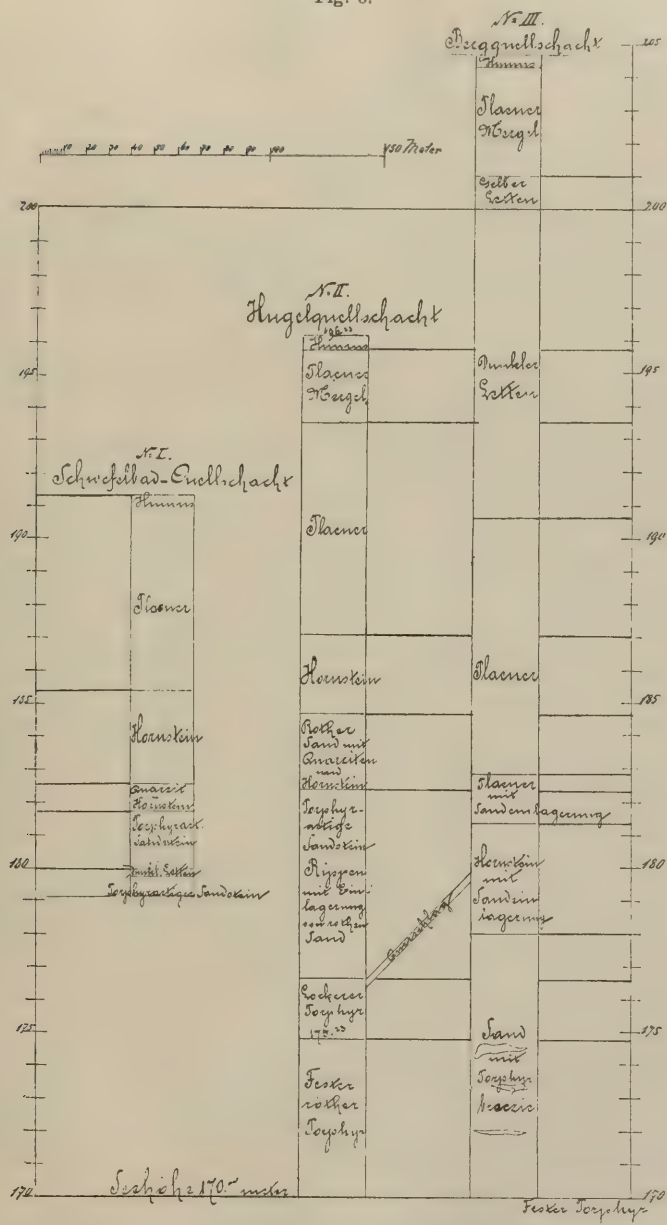 Fig. 6.
N. III.
Bergquellschacht
Humus
Plaener
Mergel
Gelber
Letten
Dunkler
Letten
Plaener
Plaener
mit
Sandeinlagerung
Hornstein
mit
Sandein
lagerung
Sand
mit
Porphyr
breccie
Fester Porphyr
205
200
195
190
185
180
175
170
10 20 30 40 50 60 70 80 90 100 150 Meter
N. II.
Hugelquellschacht
Humus
Plaener
Mergel
Plaener
Hornstein
Rother
Sand mit
Quarziten
und
Hornstein
Porphyr-
artige
Sandstein
Rippen
mit Ein
lagerung
von rothem
Sand
Lockerer
Porphyr
Fester
rother
Porphyr
N. I.
Schwefelbad-Quellschacht
Humus
Plaener
Hornstein
Quarzit
Hornstein
Porphyrart.
Sandstein
Letten
Porphyrartiger Sandstein
200
195
190
185
180
175
170
Seehöhe 170. meter